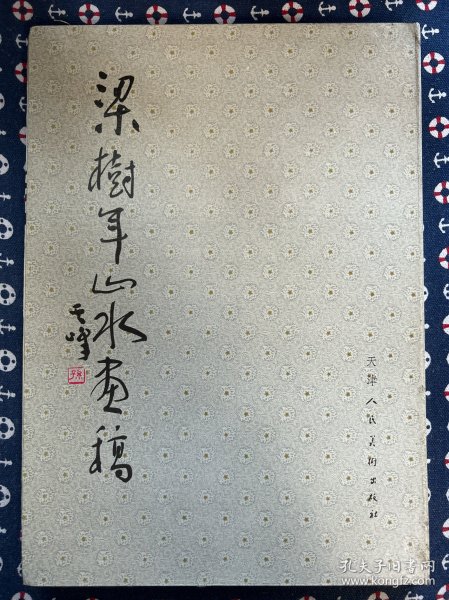 梁樹年山水画稿
其峰
孫
天津人民美術出版社
孔夫子旧书网
www.kongfz.com